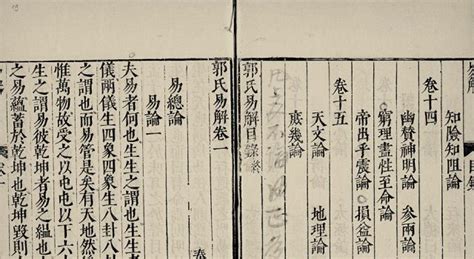 知險知阻論
卷十四
幽贊神明論 參兩論
窮理盡性至命論
帝出乎震論 損益論
卷十五
天文論 地理論
庶幾論
郭氏易解目錄終
郭氏易解卷一
易總論
易論一
夫易者何也生生之謂也生生
儀兩儀生四象四象生八卦八
之謂也而易管是矣有天地然
惟萬物故受之以屯屯以下六
生之謂易彼乾坤者易之縕也
之易蘊蓄於乾坤也乾坤毀則